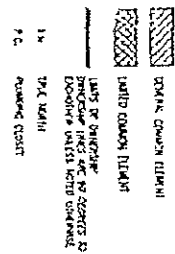 GENERAL COMMON ELEMENT
LIMITED COMMON ELEMENT
LIMITS OF OWNERSHIP
OWNERSHIP LINES ARE 90 DEGREES TO
EACHOTHER UNLESS NOTED OTHERWISE
TRUE NORTH
P.C. PLUMBING CLOSET